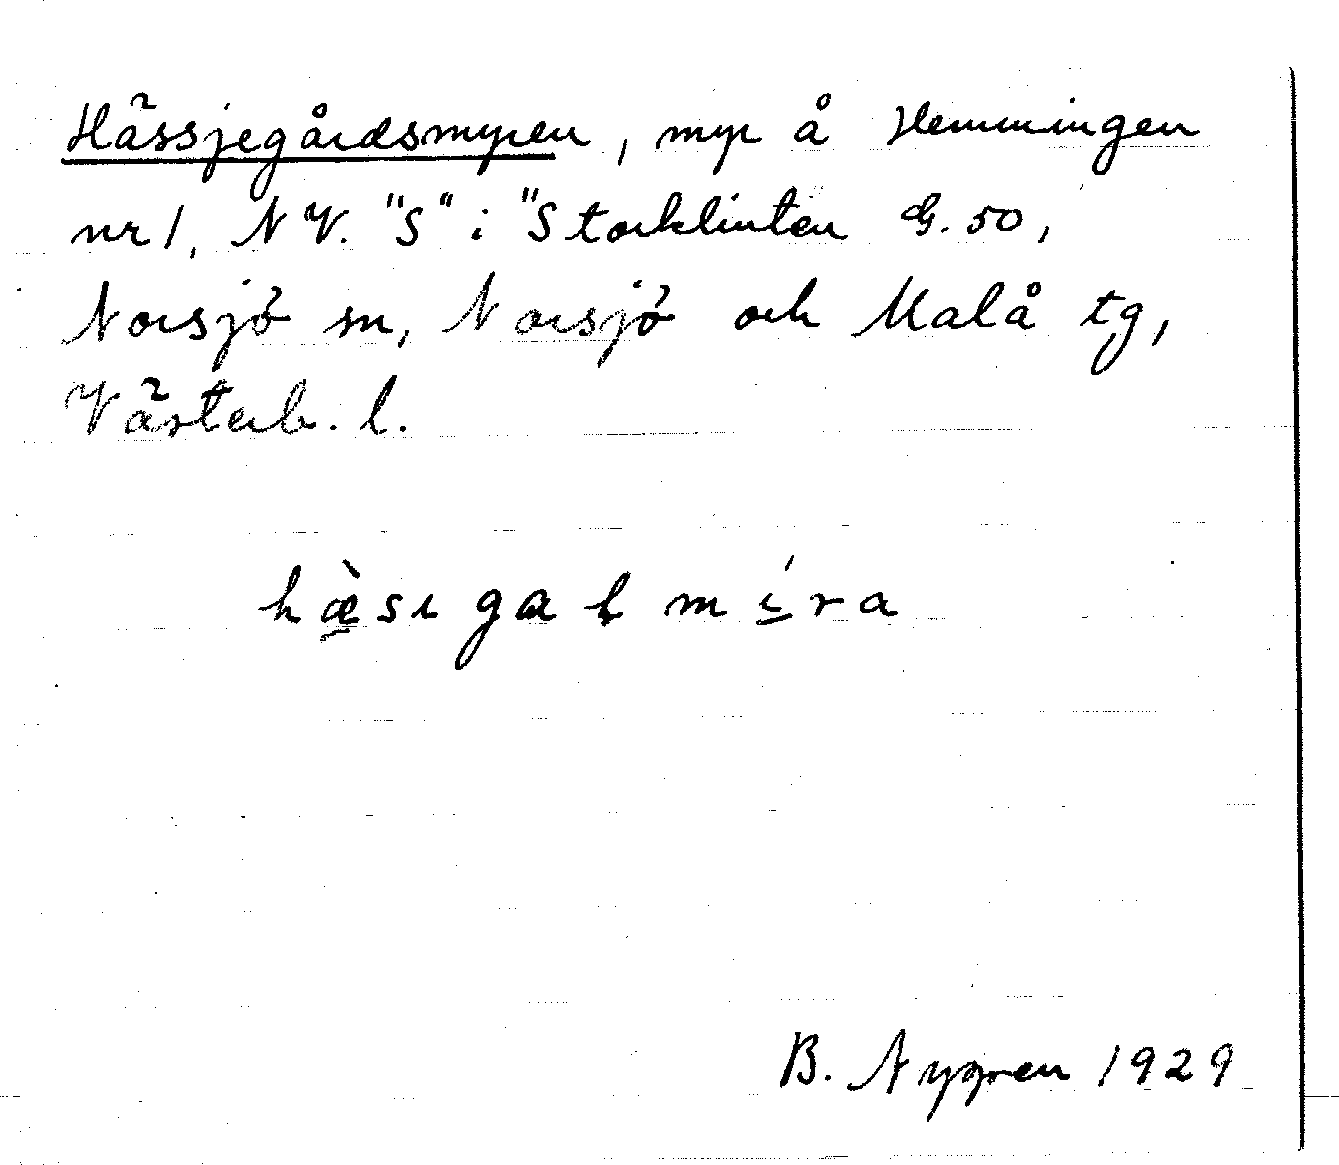 Hässjegårdsmyren, myr å Hemmingen
nr 1, NV. "S" i "Storklinten G. 50,
Norsjö sn, Norsjö och Malå tg,
Västerb. l.
hæ̀sɩgaɫmí̱ra
B. Nygren 1929